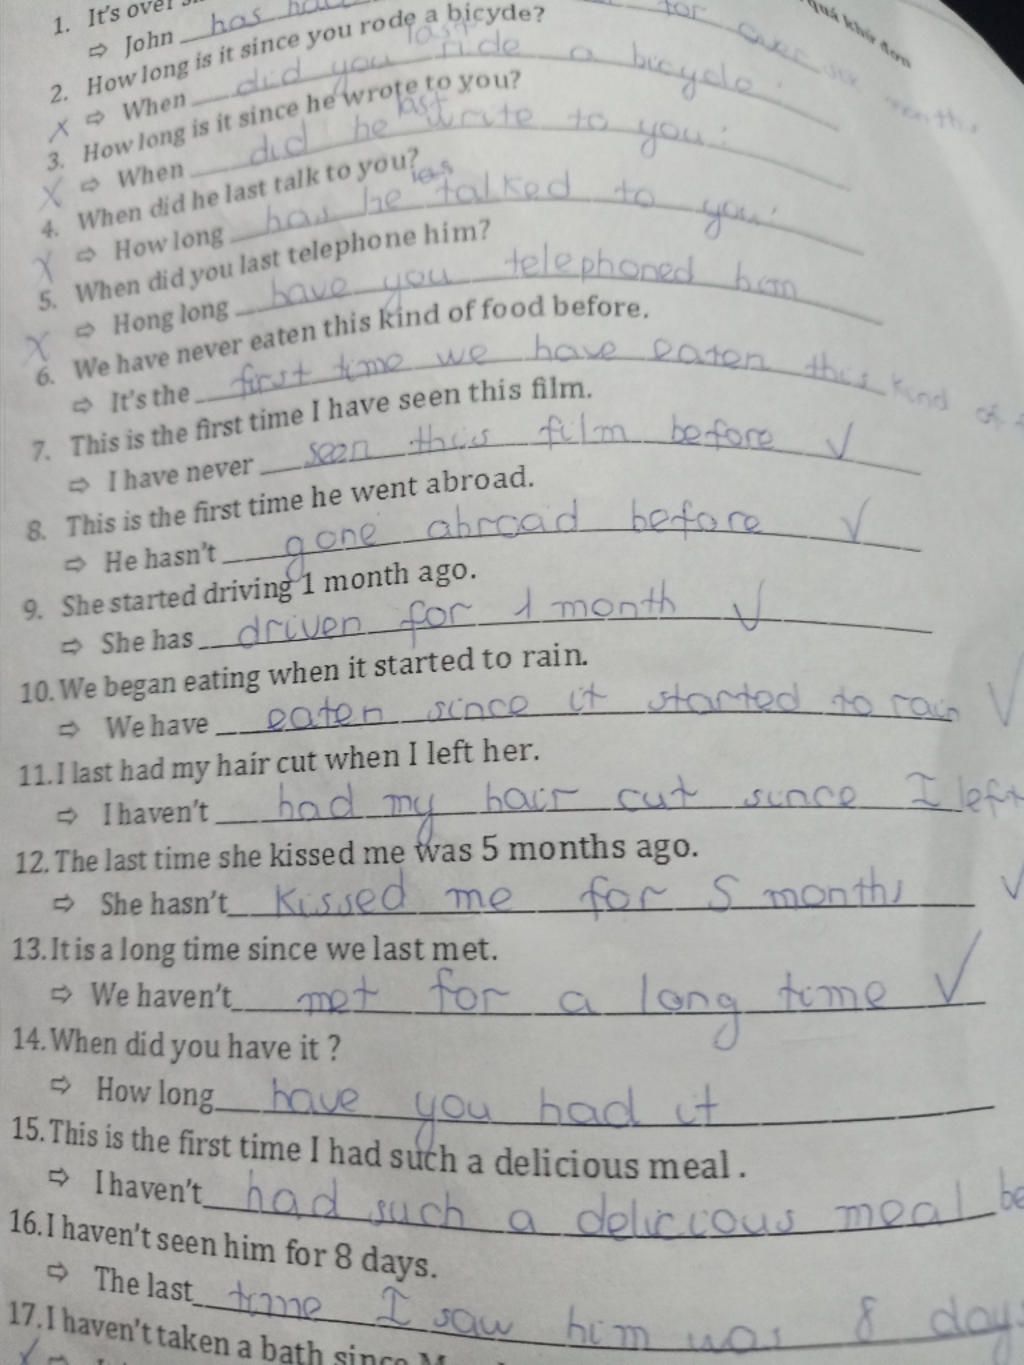 quá khứ đơn
1. It's over
⇨ John has for over six months
2. How long is it since you rode a bicyde?
last
x ⇨ When did you ride a bicycle
3. How long is it since he wrote to you?
last
x ⇨ When did he write to you
4. When did he last talk to you?
las
x ⇨ How long has he talked to you
5. When did you last telephone him?
x ⇨ Hong long have you telephoned him
6. We have never eaten this kind of food before.
⇨ It's the first time we have eaten this kind of
7. This is the first time I have seen this film.
⇨ I have never seen this film before ✓
8. This is the first time he went abroad.
⇨ He hasn't gone abroad before ✓
9. She started driving 1 month ago.
⇨ She has driven for 1 month ✓
10. We began eating when it started to rain.
⇨ We have eaten since it started to rain ✓
11. I last had my hair cut when I left her.
⇨ I haven't had my hair cut since I left
12. The last time she kissed me was 5 months ago.
⇨ She hasn't kissed me for 5 months ✓
13. It is a long time since we last met.
⇨ We haven't met for a long time ✓
14. When did you have it ?
⇨ How long have you had it
15. This is the first time I had such a delicious meal .
⇨ I haven't had such a delicious meal be
16. I haven't seen him for 8 days.
⇨ The last time I saw him was 8 days
17. I haven't taken a bath since